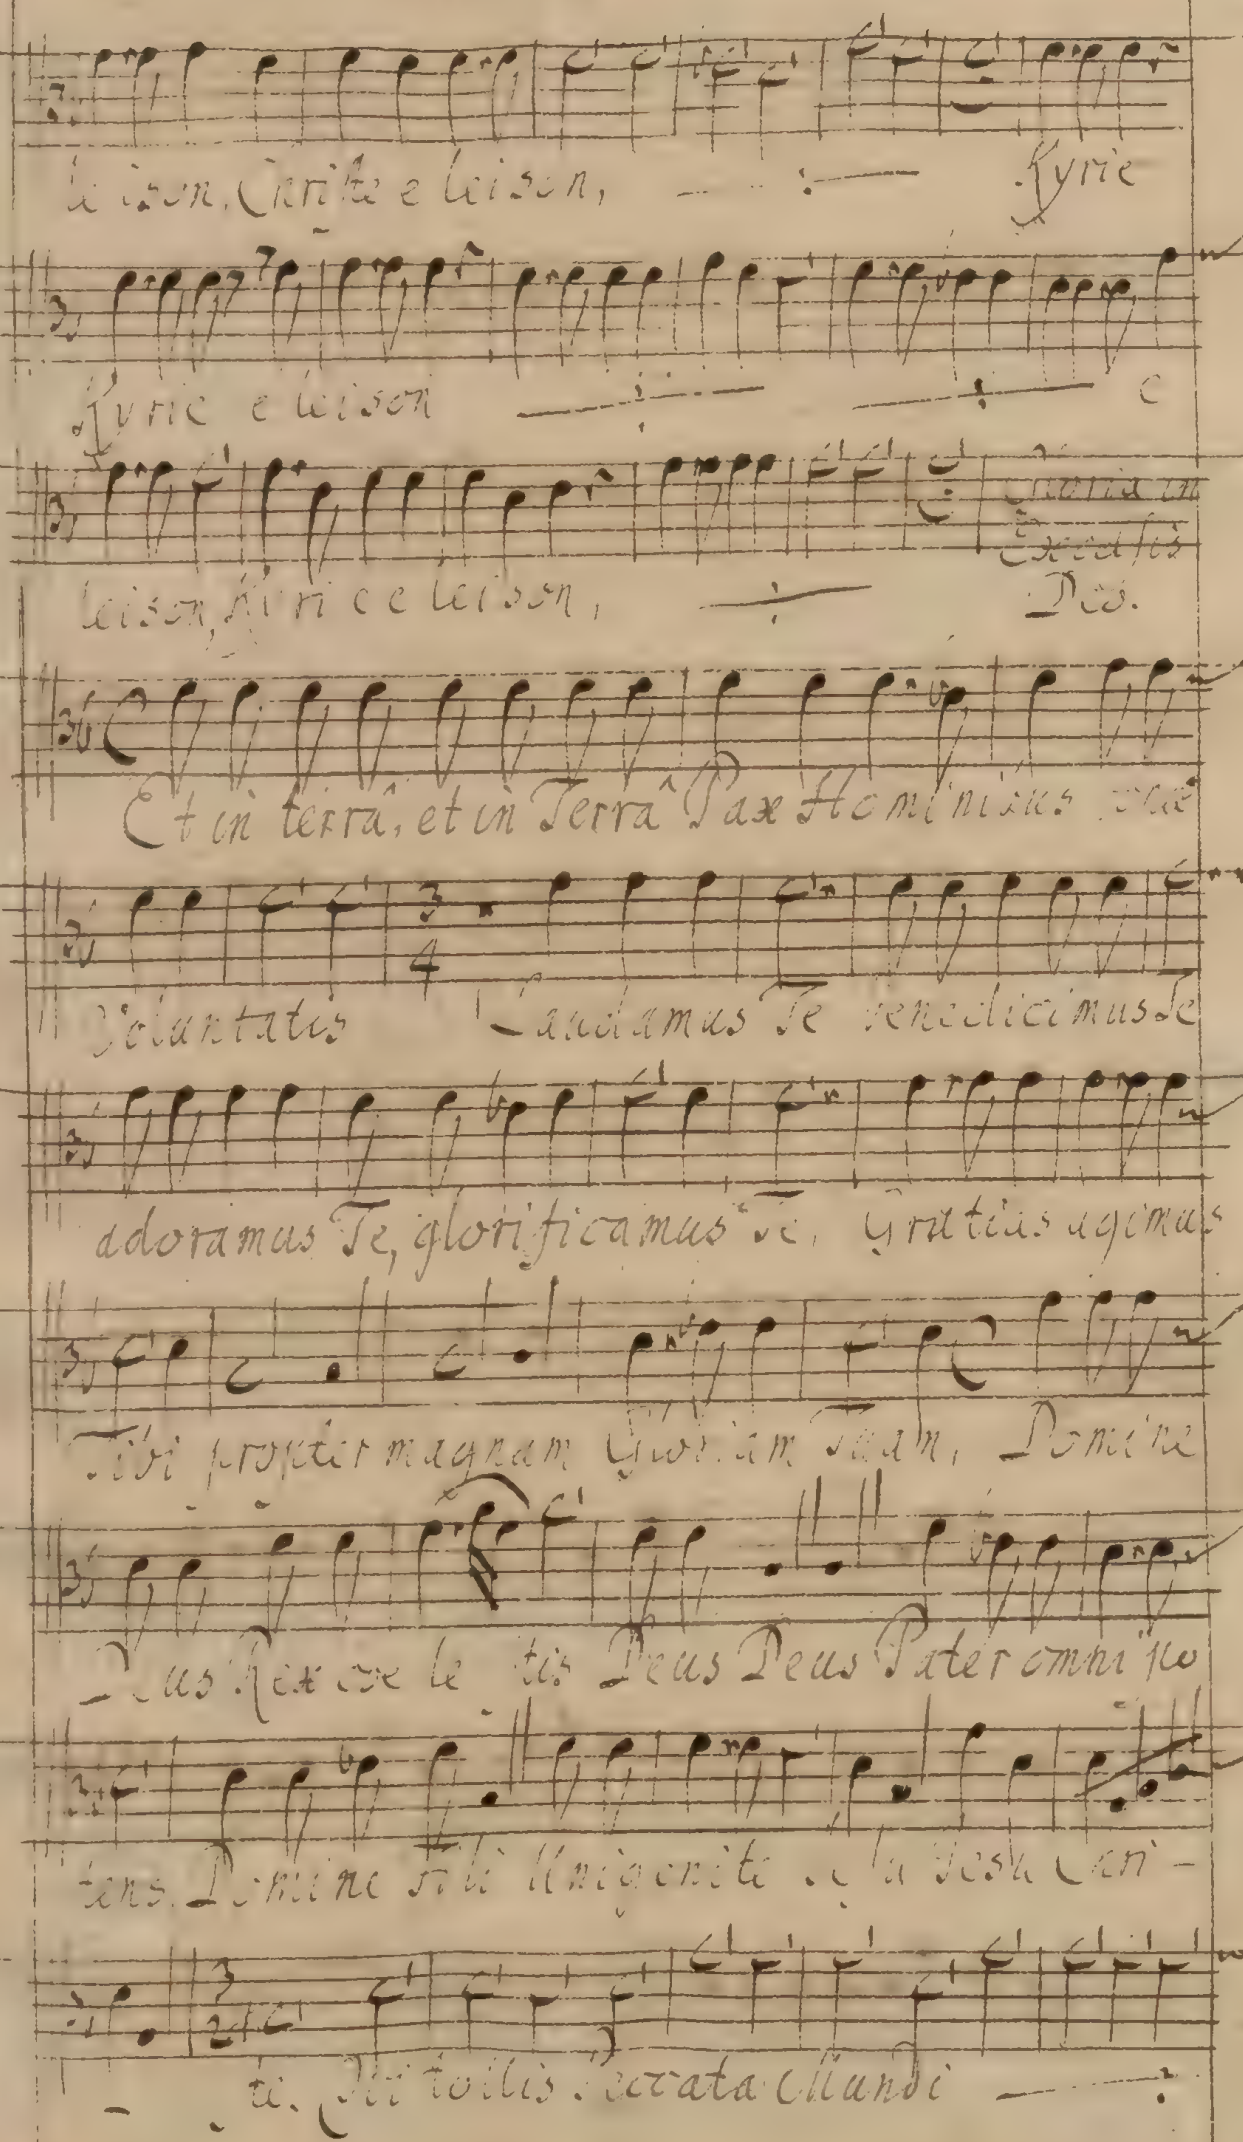 leison, Christe eleison, Kyrie
Kyrie eleison e
Gloria in
Excelsis
leison, Kyrie eleison, Deo.
Et in terrâ, et in Terrâ Pax Hominibus bonæ
3
4
Voluntatis Laudamus Te benedicimus Te
adoramus Te, glorificamus Te, Gratias agimus
Tibi propter magnam Gloriam Tuam, Domine
Deus Rex cœle tis Deus Deus Pater omnipo
tens. Domine Fili Unigenite Jesu Chri-
3
2
te. Qui tollis Peccata Mundi